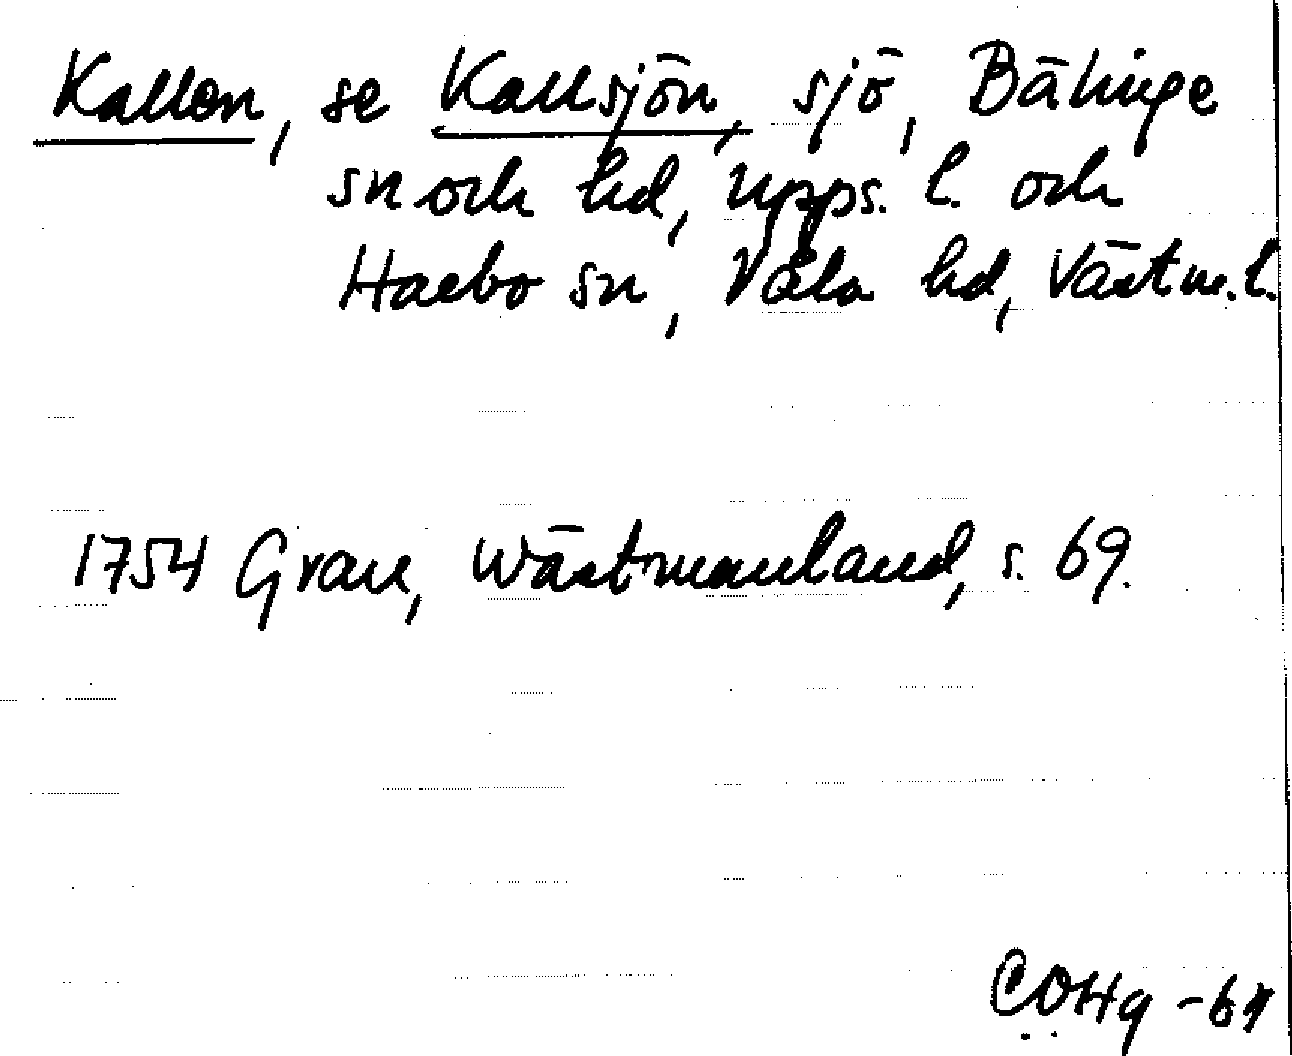 Kallen, se Kallsjön, sjö, Bälinge
sn och hd, Upps. l. och
Harbo sn, Våla hd, Västm. l.
1754 Grau, Wästmanland, s. 69.